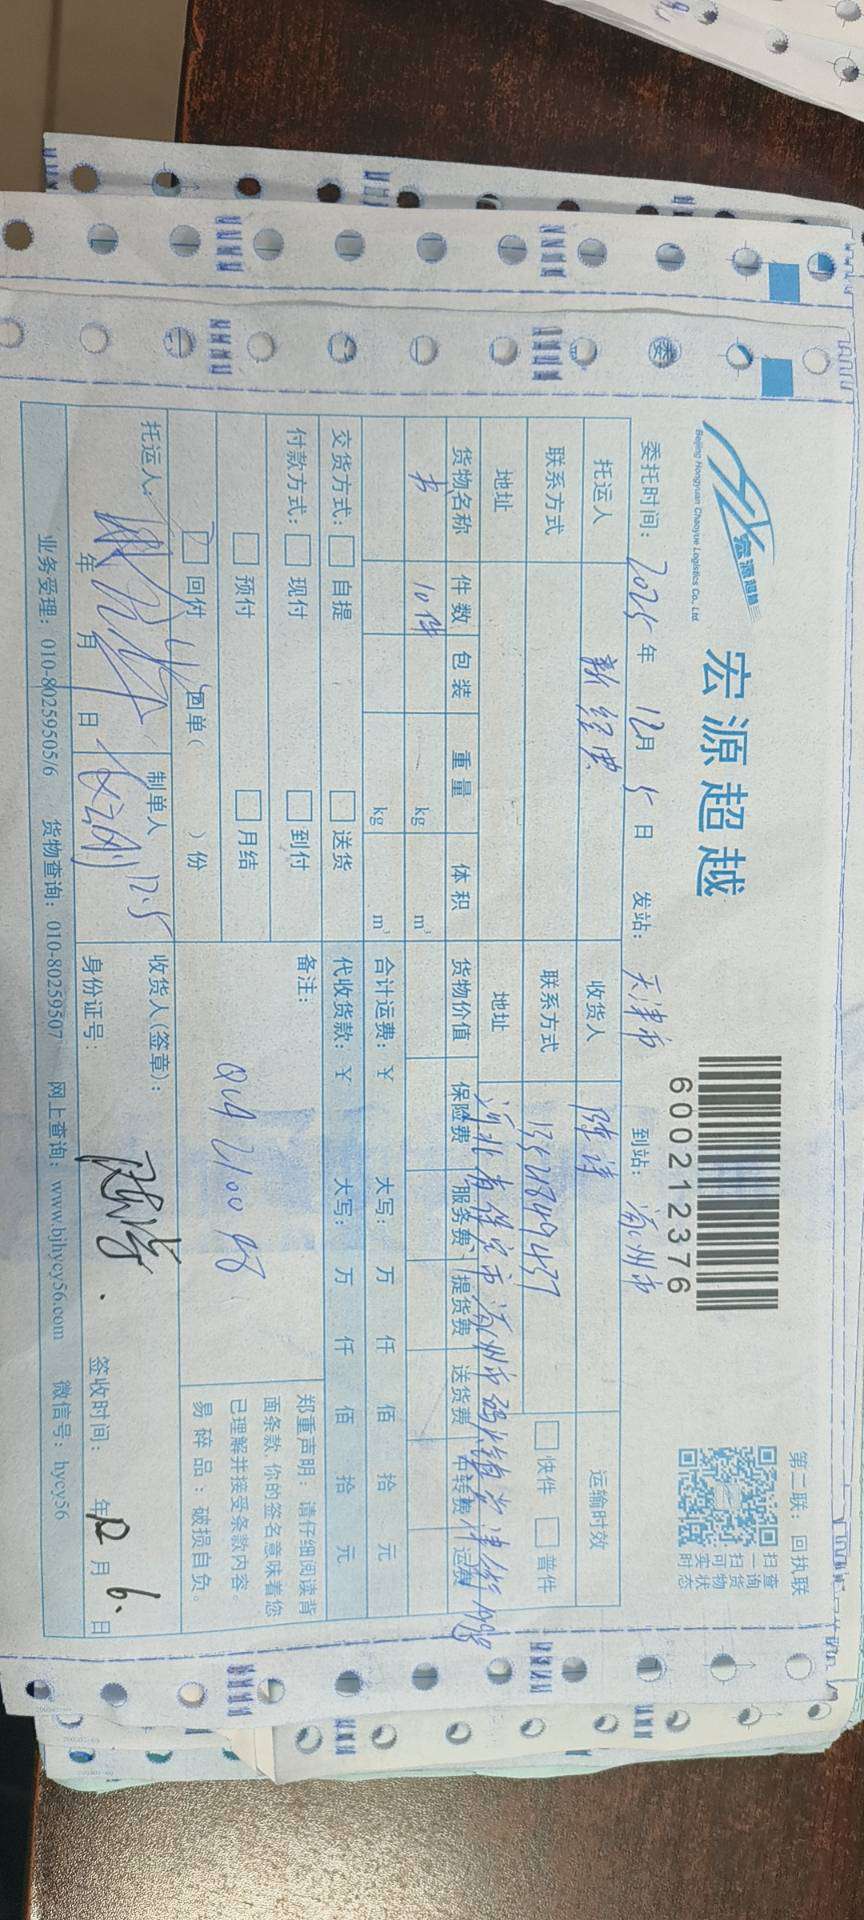 宏源超越
Beijing Hongyuan Chaoyue Logistics Co., Ltd
宏源超越
600212376
第二联：回执联
扫查
一询
扫货
可物
实状
时态
委托时间：2025年12月5日 发站：天津市 到站：涿州市
托运人 新经典 收货人 陈祥 运输时效
联系方式 联系方式 13521849437 快件 普件
地址 地址 河北省保定市涿州市码头镇
货物名称 件数 包装 重量 体积 货物价值 保险费 服务费 提货费 送货费 中转费 运费
书 10件 kg m³
kg m³ 合计运费：¥ 大写： 万 仟 佰 拾 元
交货方式： 自提 送货 代收货款：¥ 大写： 万 仟 佰 拾 元
付款方式： 现付 到付 备注：
预付 月结
回付 回单( )份
郑重声明：请仔细阅读背
面条款 你的签名意味着您
已理解并接受条款内容。
易碎品：破损自负。
托运人： 年 月 日 制单人 12.5 收货人(签章)：
身份证号： 签收时间： 年12月6日
业务受理：010-80259505/6 货物查询：010-80259507 网上查询：www.bjhycy56.com 微信号：hycy56